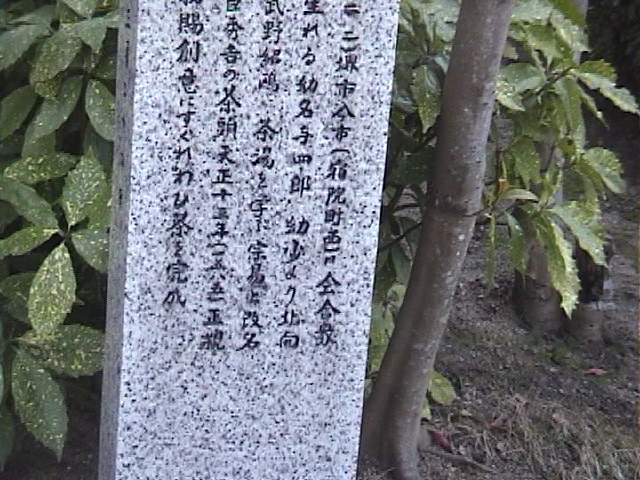 二二堺市今市(宿院町西)に会合衆
生れる幼名与四郎 幼少より北向
武野紹鴎 茶湯を学び宗易と改名
臣秀吉の茶頭 天正十三年(一五八五)正親
賜 創意にすぐれわび茶を完成